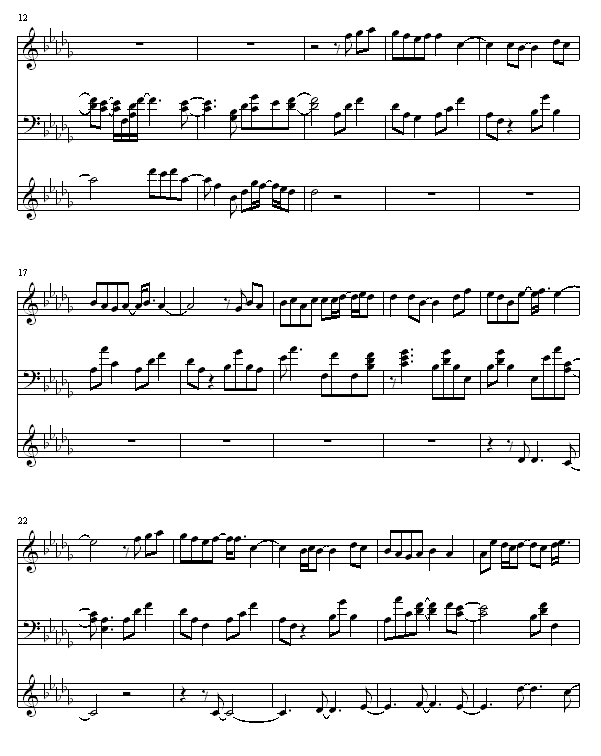 12
17
22